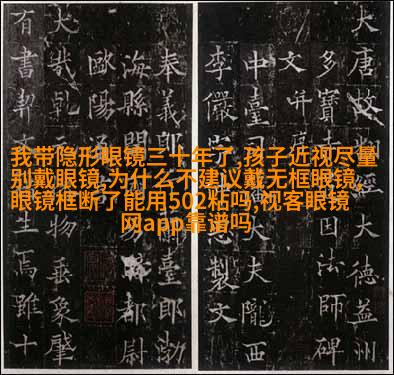 大唐故大德益州
多寶寺因法師碑
文并
中臺司大夫隴西
李儼字製文
奉義郎臺郎渤
海縣開都尉
歐陽通
大哉乾元物垂象肇
有書契生焉雖十
我带隐形眼镜三十年了,孩子近视尽量
别戴眼镜,为什么不建议戴无框眼镜,
眼镜框断了能用502粘吗,视客眼镜
网app靠谱吗